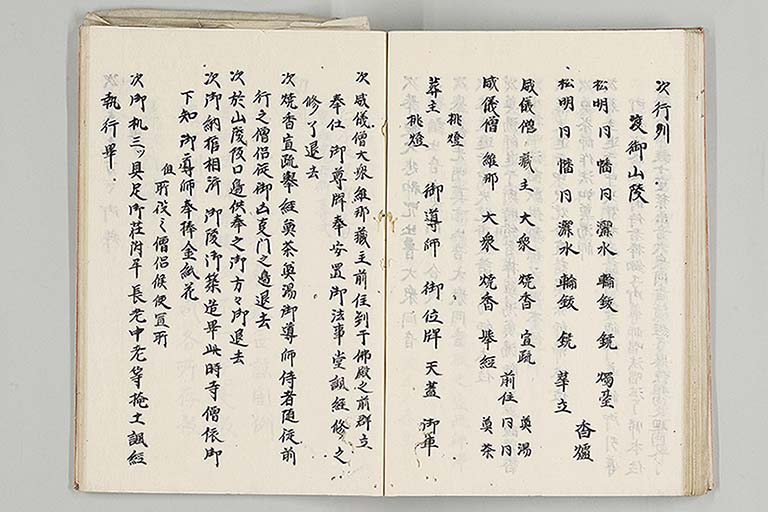 次行列
渡御山陵
松明 同 幡 同 灑水 輪鈸 鐃 燭臺
松明 同 幡 同 灑水 輪鈸 鐃 華立
香爐
威儀僧 藏主 大衆 焼香 宣疏
前住 同 同
奠湯
奠茶
威儀僧 維那 大衆 焼香 舉経
挑燈
御導師 御位牌 天蓋 御車
葬主 挑燈
次威儀僧大衆維那藏主前住到于佛殿之前群立
奉仕御尊牌奉安置御法事堂諷経修之
修了退去
次焼香宣疏舉経奠茶奠湯御導師侍者随従前
行之僧侶従御門之邊退去
次於山陵陵口邊供奉之御方々御退去
次御納棺相済御陵御築造畢此時寺僧依御
下知御導師奉捧金紙花
但所残之僧侶候便宜所
次御机三ッ具足御荘附平長老中老等掩土諷経
次執行畢